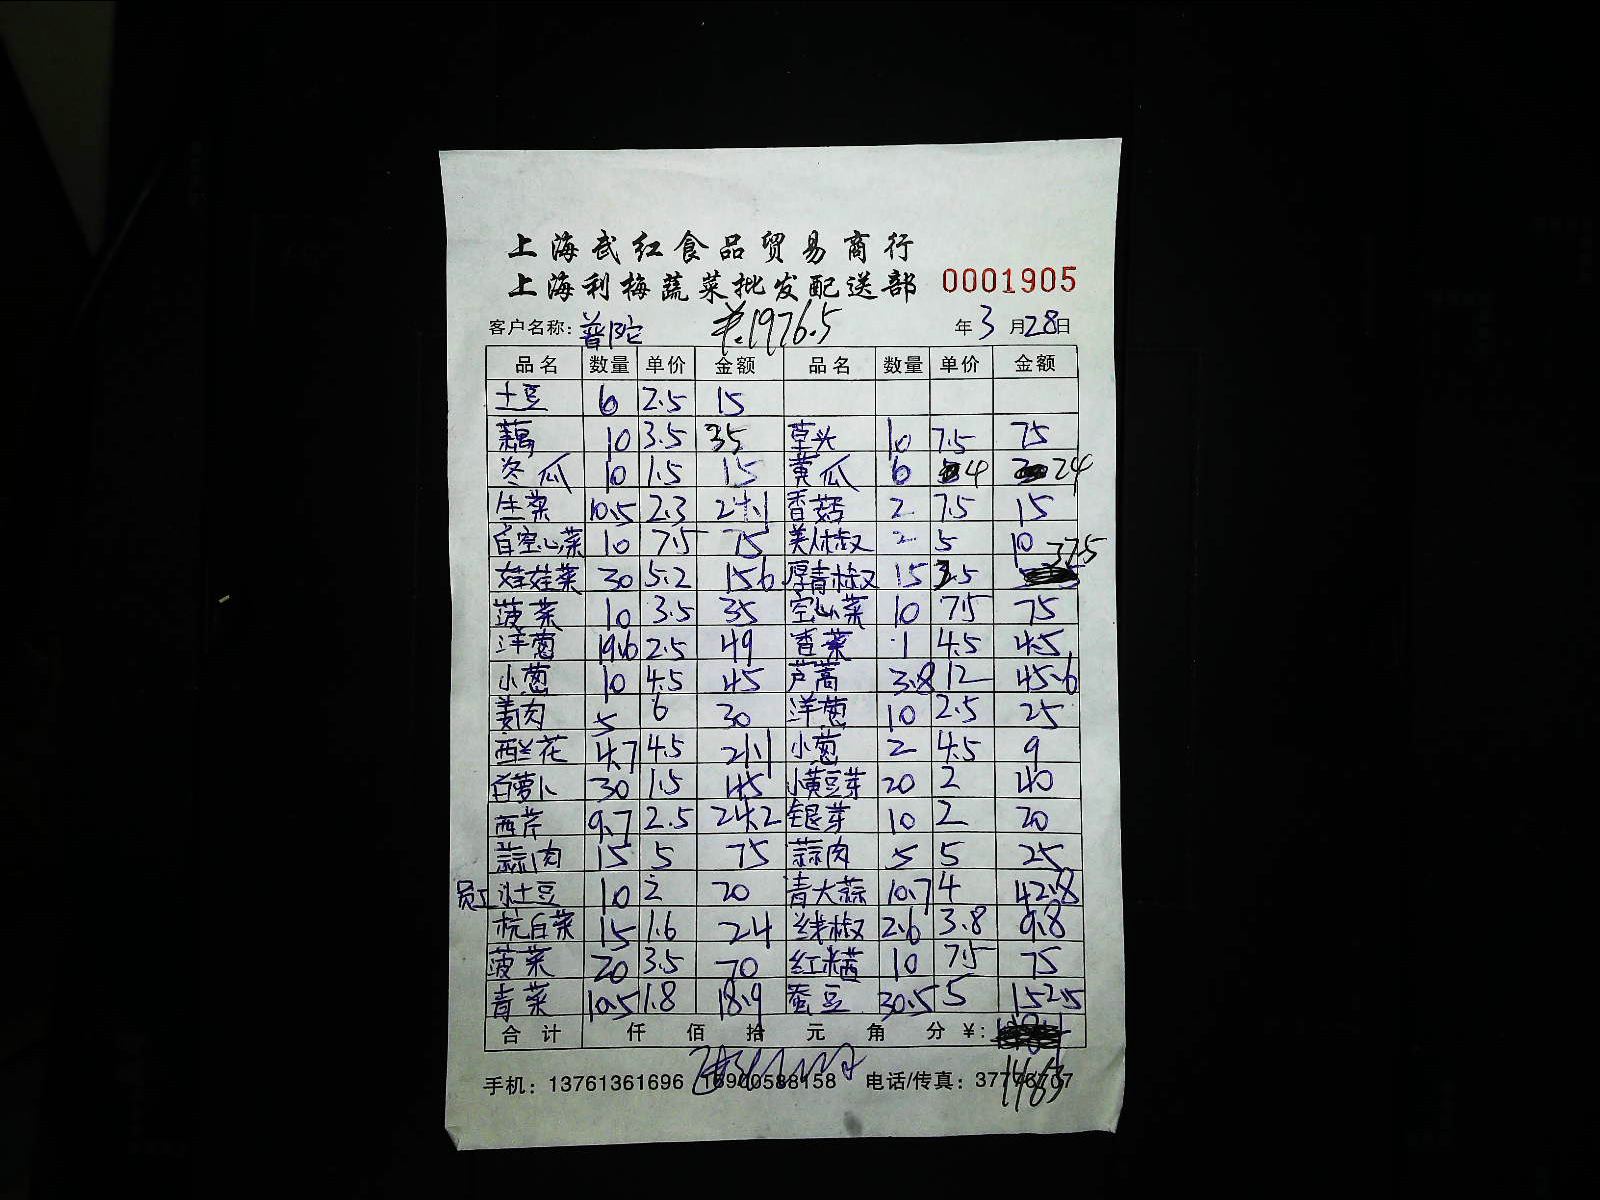 上海武红食品贸易商行
上海利梅蔬菜批发配送部 0001905
客户名称：普陀 ¥.1976.5 年3月28日
品名 数量 单价 金额 品名 数量 单价 金额
土豆 6 2.5 15
藕 10 3.5 35 草头 10 7.5 75
冬瓜 10 1.5 15 黄瓜 6 4 24
生菜 10.5 2.3 24.1 香菇 2 7.5 15
白空心菜 10 7.5 75 美人椒 2 5 10
娃娃菜 30 5.2 156 厚青椒 15 2.5 37.5
菠菜 10 3.5 35 空心菜 10 7.5 75
洋葱 19.6 2.5 49 香菜 1 4.5 4.5
小葱 10 4.5 45 芦蒿 3.8 12 45.6
姜肉 5 6 30 洋葱 10 2.5 25
西兰花 4.7 4.5 21.1 小葱 2 4.5 9
白萝卜 30 1.5 45 小黄豆芽 20 2 40
西芹 9.7 2.5 24.2 银芽 10 2 20
蒜肉 15 5 75 蒜肉 5 5 25
员工小土豆 10 2 20 青大蒜 10.7 4 42.8
杭白菜 15 1.6 24 线椒 2.6 3.8 9.8
菠菜 20 3.5 70 红米苋 10 7.5 75
青菜 10.5 1.8 18.9 蚕豆 30.5 5 152.5
合计 仟 佰 拾 元 角 分 ¥:
1463
手机：13761361696 15900588158 电话/传真：37776707